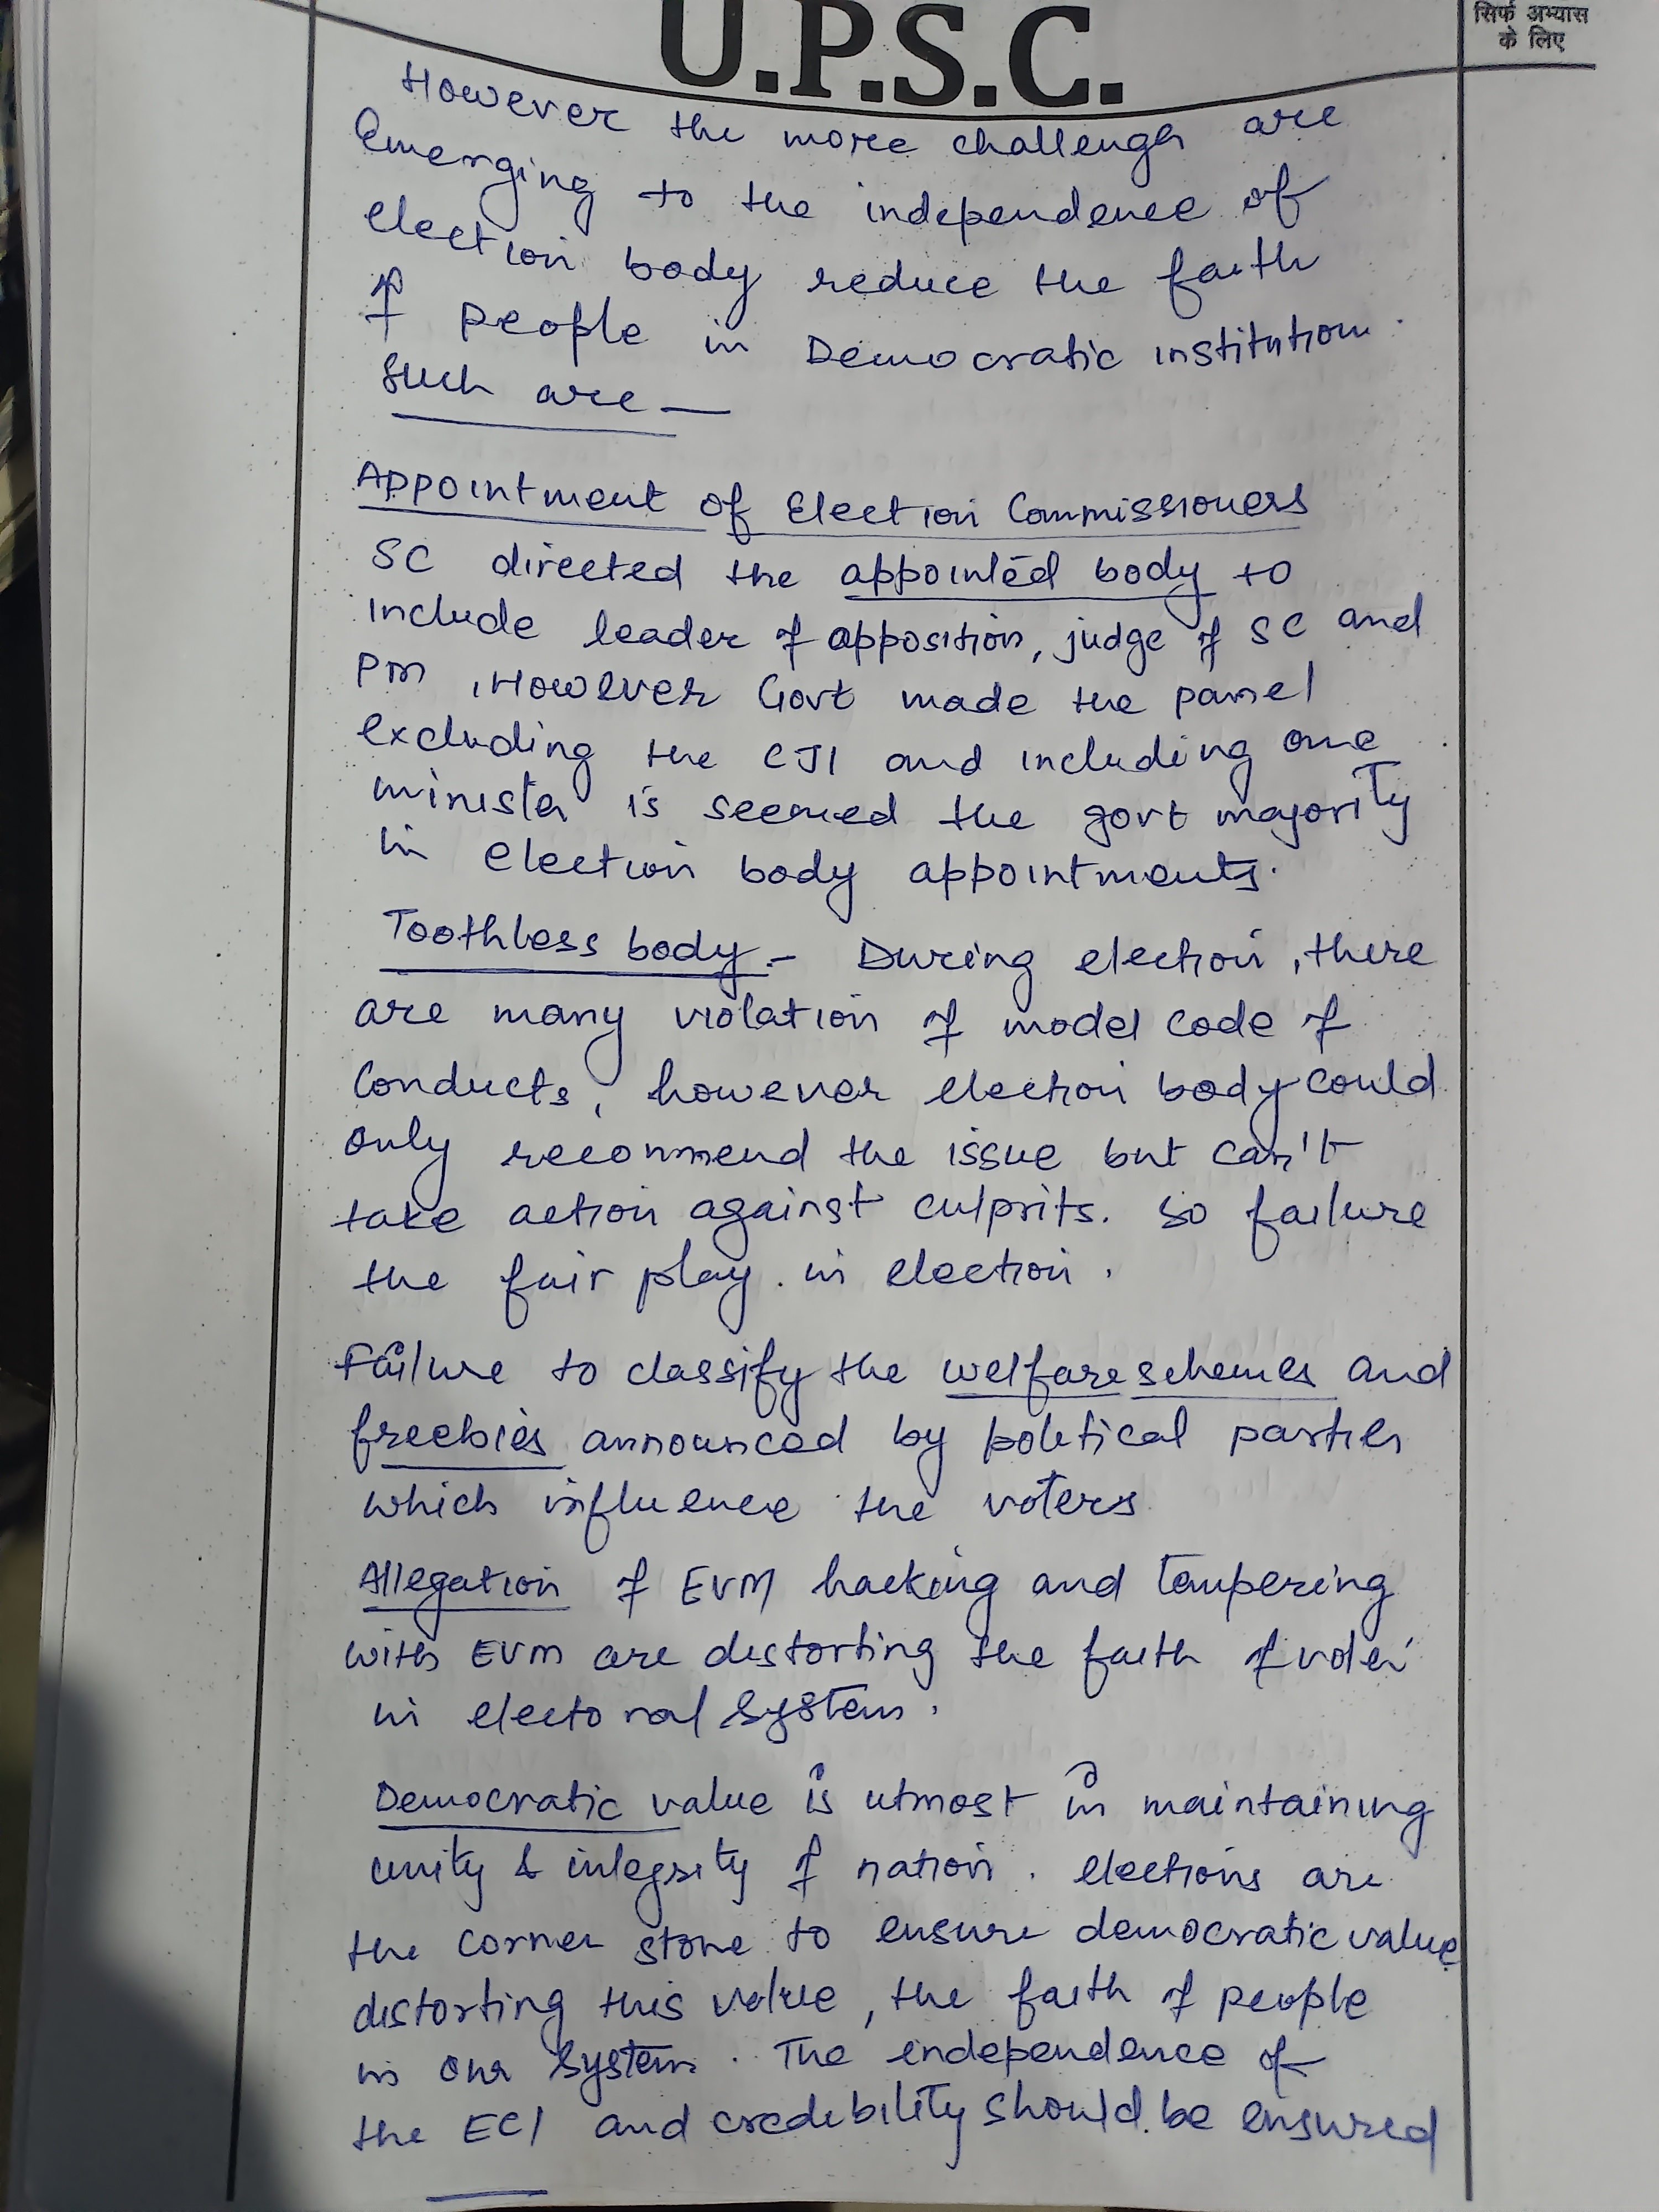 U.P.S.C.
सिर्फ अभ्यास
के लिए
However the more challenges are
emerging to the independence of
election body reduce the faith
of people in Democratic institution.
such are —
Appointment of Election Commissioners
SC directed the appointed body to
include leader of apposition, judge of SC and
PM, However Govt made the pannel
excluding the CJI and including one
minister is seemed the govt majority
in election body appointments.
Toothless body - During election, there
are many violation of model code of
conducts, however election body could
only recommend the issue but can't
take action against culprits. so failure
the fair play. in election.
Failure to classify the welfare schemes and
freebies announced by political parties
which influence the voters
Allegation of EVM hacking and tampering
with EVM are distorting the faith of voter
in electoral system.
Democratic value is utmost in maintaining
unity & integrity of nation. elections are
the corner stone to ensure democratic value
distorting this value, the faith of people
in our system. The independence of
the ECI and credibility should be ensured